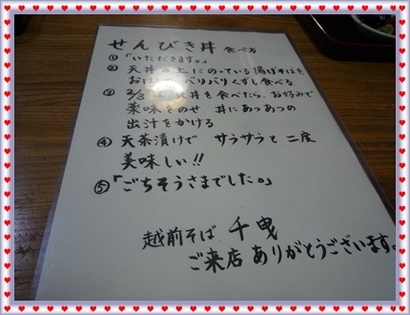 せんびき丼 食べ方
① 「いただきます。」
② 天丼の上にのっている揚げそばを
おはしでバリバリくずし食べる
③ 2/3 天丼を食べたら、お好みで
薬味をのせ 丼にあつあつの
出汁をかける
④ 天茶漬けで サラサラと 二度
美味しい!!
⑤ 「ごちそうさまでした。」
越前そば 千曳
ご来店 ありがとうございます。